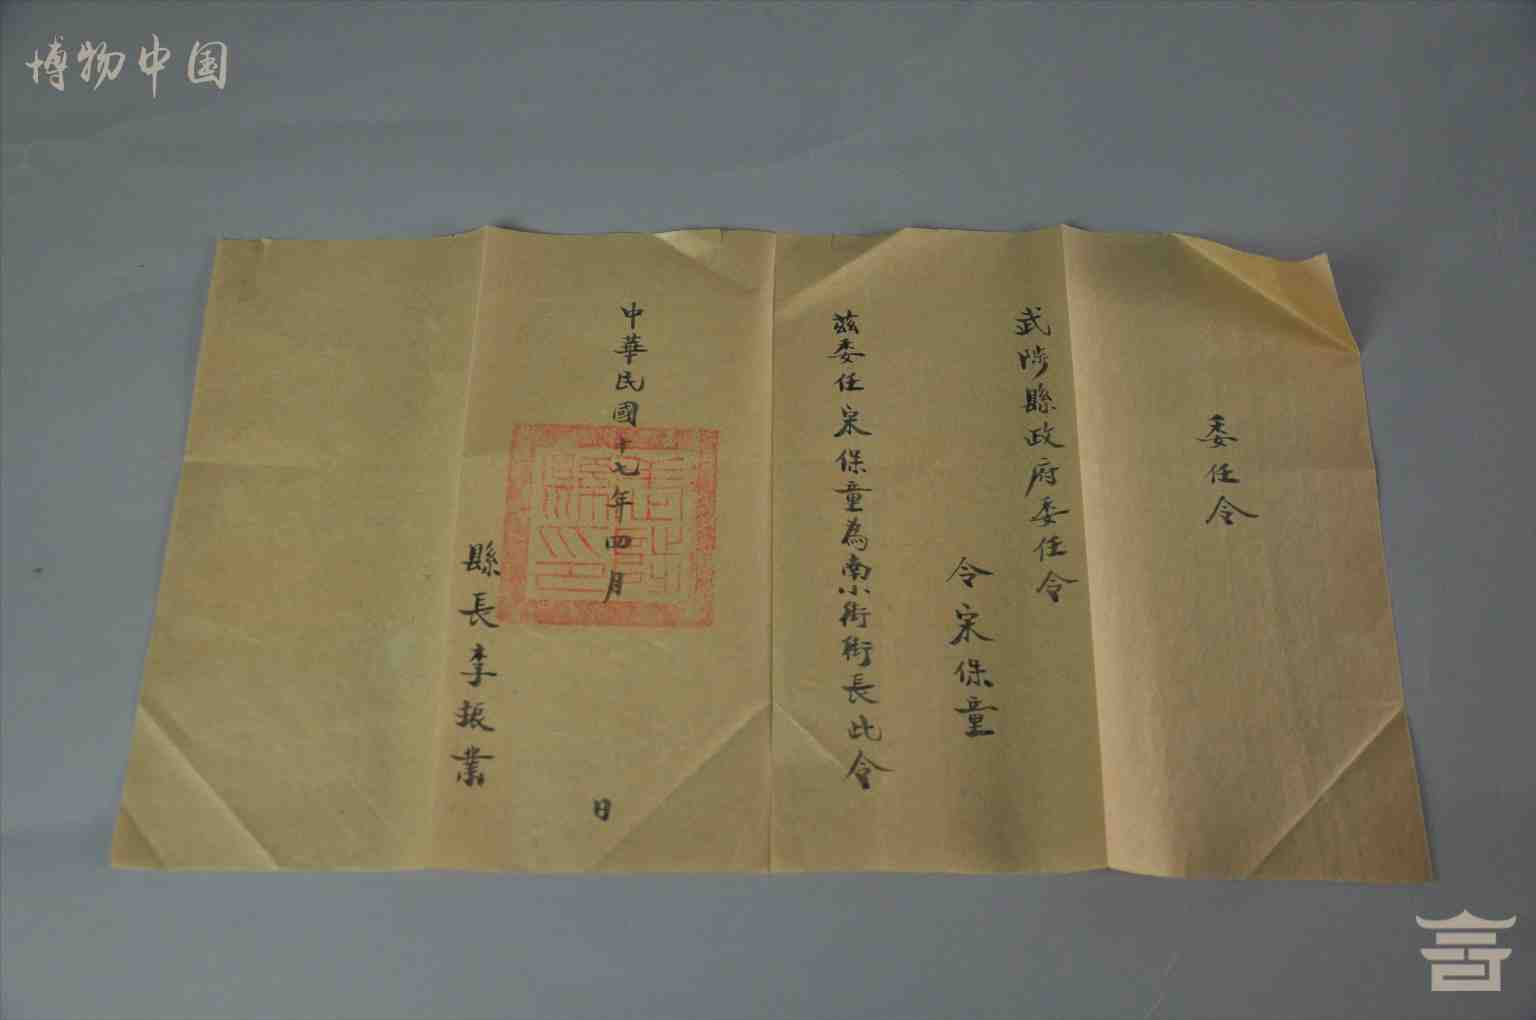 博物中国
委任令
武陟縣政府委任令
令宋保童
茲委任宋保童為南小街街長此令
中華民國十七年四月 日
縣長李振業